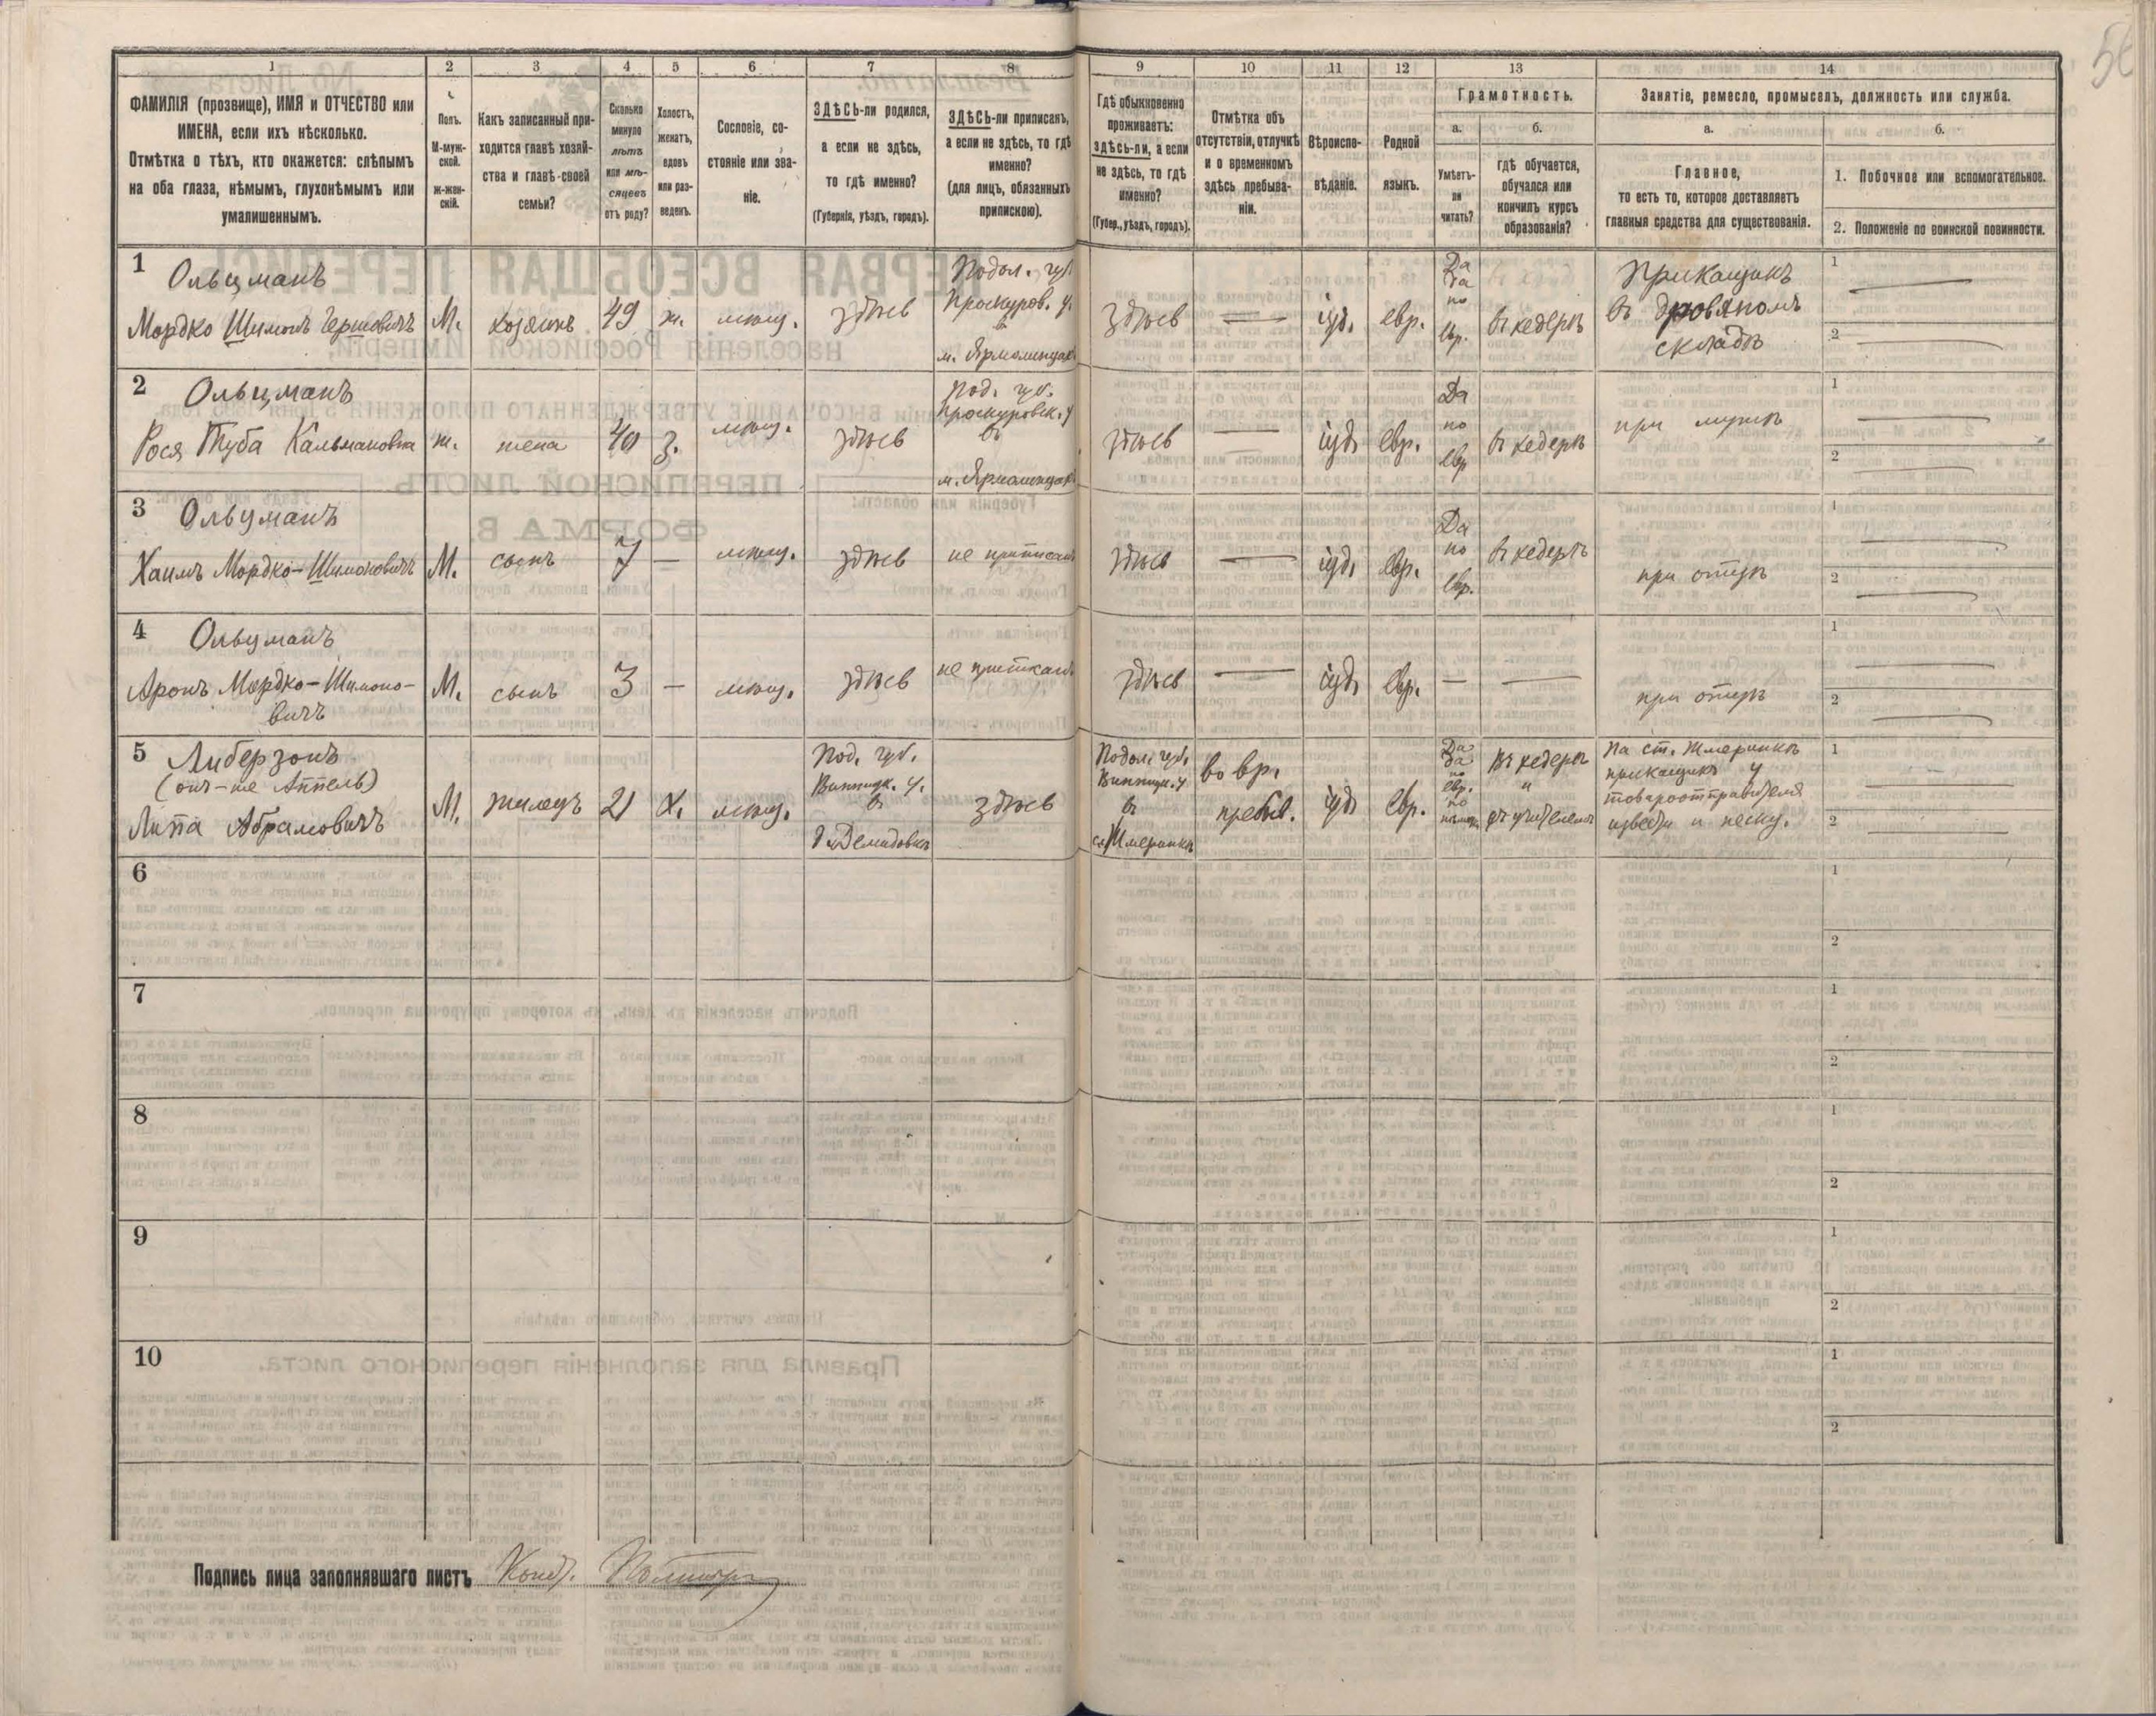 56
1 2 3 4 5 6 7 8 9 10 11 12 13 14
ФАМИЛІЯ (прозвище), ИМЯ и ОТЧЕСТВО или
ИМЕНА, если ихъ нѣсколько.
Отмѣтка о тѣхъ, кто окажется: слѣпымъ
на оба глаза, нѣмымъ, глухонѣмымъ или
умалишеннымъ.
Полъ.
М-муж-
ской.
ж-жен-
скій.
Какъ записанный при-
ходится главѣ хозяй-
ства и главѣ своей
семьи?
Сколько
минуло
лѣтъ
или мѣ-
сяцевъ
отъ роду?
Холостъ,
женатъ,
вдовъ
или раз-
веденъ.
Сословіе, со-
стояніе или зва-
ніе.
ЗДѢСЬ-ли родился,
а если не здѣсь,
то гдѣ именно?
(Губернія, уѣздъ, городъ).
ЗДѢСЬ-ли приписанъ,
а если не здѣсь, то гдѣ
именно?
(для лицъ, обязанныхъ
припискою).
Гдѣ обыкновенно
проживаетъ:
здѣсь-ли, а если
не здѣсь, то гдѣ
именно?
(Губер., уѣздъ, городъ).
Отмѣтка объ
отсутствіи, отлучкѣ
и о временномъ
здѣсь пребыва-
ніи.
Вѣроиспо-
вѣданіе.
Родной
языкъ.
Грамотность.
а.
Умѣетъ-
ли
читать?
б.
гдѣ обучается,
обучался или
кончилъ курсъ
образованія?
Занятіе, ремесло, промыселъ, должность или служба.
а.
Главное,
то есть то, которое доставляетъ
главныя средства для существованія.
б.
1. Побочное или вспомогательное.
2. Положеніе по воинской повинности.
1 Ольцманъ
Мордко Шимонъ Гершовичъ М. хозяинъ 49 ж. мѣщ. здѣсь
Подол. губ.
Проскуров. у.
в
м. Ярмолинцах
здѣсь — іуд. евр.
Да
по
евр.
въ хедерѣ
Прикащикъ
въ дровяномъ
складѣ
1 —
2 —
2 Ольцманъ
Рося Туба Кальмановна ж. жена 40 з. мѣщ. здѣсь
Под. губ.
Проскуровск. у
въ
м. Ярмолинцах
здѣсь — іуд. евр.
Да
по
евр
въ хедерѣ
при мужѣ
1 —
2 —
3 Ольцманъ
Хаимъ Мордко-Шимоновичъ М. сынъ 7 — мѣщ. здѣсь не приписанъ
здѣсь — іуд. евр.
Да
по
евр.
въ хедерѣ
при отцѣ
1 —
2 —
4 Ольцманъ
Аронъ Мордко-Шимоно-
вичъ
М. сынъ 3 — мѣщ. здѣсь не приписанъ
здѣсь — іуд. евр. — —
при отцѣ
1 —
2 —
5 Либерзонъ
(онъ-же Аппель)
Липа Абрамовичъ М. жилецъ 21 х. мѣщ.
Под. губ.
Винницк. у.
в
Демидовкѣ
здѣсь
Подол. губ.
Винницк. у
в
Жмеринкѣ
во вр.
пребыв.
іуд. евр.
Да
да
по
евр.
по
въ хедерѣ
и
учителемъ
На ст. Жмеринкѣ
прикащикъ у
товароотправителя
извести и песку.
1 —
2 —
6
1
2
7
1
2
8
1
2
9
1
2
10
1
2
Подпись лица заполнявшаго листъ